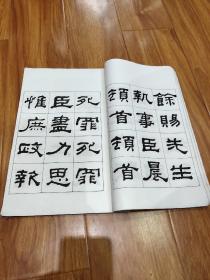 餘賜先生
執事臣晨
頓首頓首
死罪死罪
臣盡力思
惟庶政報